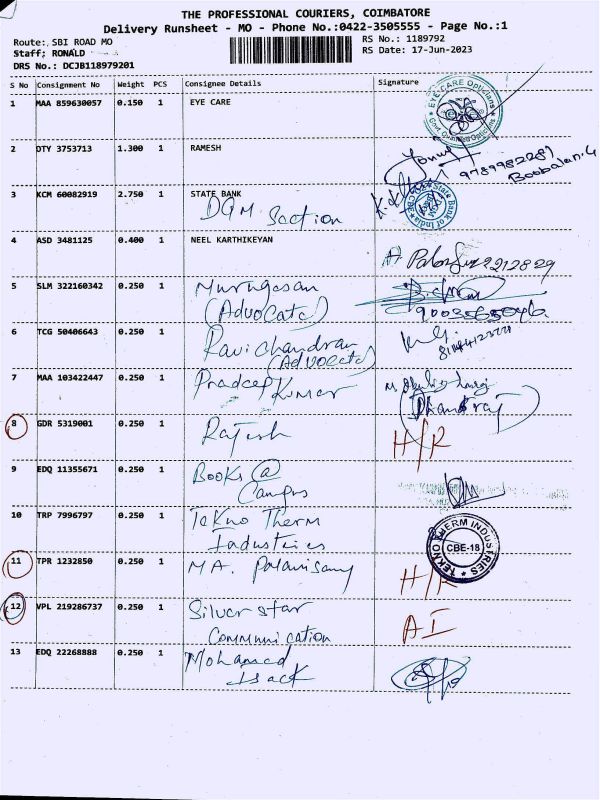 THE PROFESSIONAL COURIERS, COIMBATORE
Delivery Runsheet - MO - Phone No.:0422-3505555 - Page No.:1
Route: SBI ROAD MO
RS No.: 1189792
Staff: RONALD
RS Date: 17-Jun-2023
DRS No.: DCJB118979201
S No Consignment No Weight PCS Consignee Details Signature
1 MAA 859630057 0.150 1 EYE CARE
EYE CARE Opticians
2 DTY 3753713 1.300 1 RAMESH
9789982281
Boobalan.G
3 KCM 60082919 2.750 1 STATE BANK
DGM Section
State Bank of India
4 ASD 3481125 0.400 1 NEEL KARTHIKEYAN
5 SLM 322160342 0.250 1 Murugesan
(Advocate)
6 TCG 50406643 0.250 1 Ravi chandran
(Advocate)
7 MAA 103422447 0.250 1 Pradeep Kumar
8 GDR 5319001 0.250 1 Rajesh H/R
9 EDQ 11355671 0.250 1 Books @
Campus
10 TRP 7996797 0.250 1 Tekno Therm
Industries
TEKNO THERM INDUSTRIES
CBE-18
11 TPR 1232850 0.250 1 MA. Palanisamy H/R
12 VPL 219286737 0.250 1 Silver star
Communication AI
13 EDQ 22268888 0.250 1 Mohamed
Isack